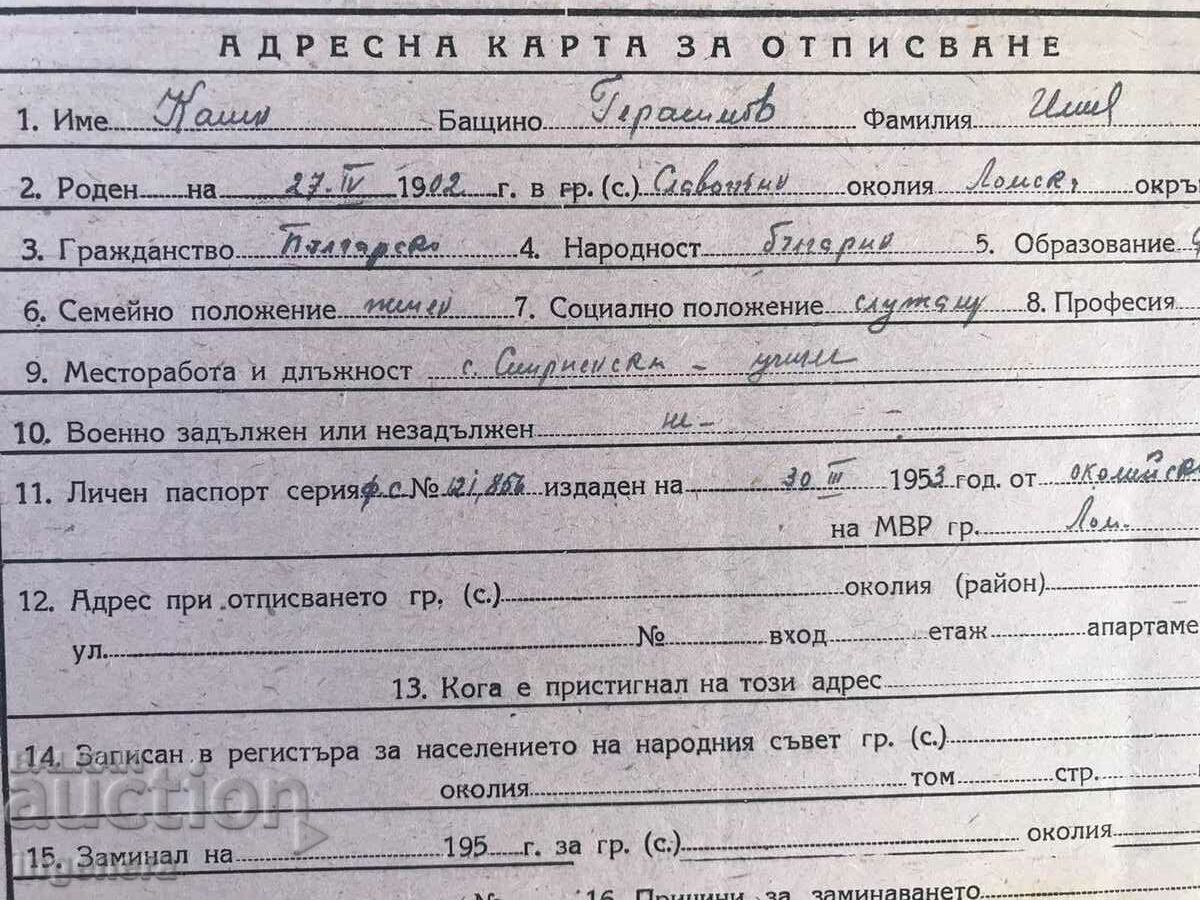 АДРЕСНА КАРТА ЗА ОТПИСВАНЕ
1. Име Бащино Герасимов Фамилия Илиев
2. Роден на 27. IV 1902 г. в гр. (с.) околия Ломск. окръ
3. Гражданство Българско 4. Народност българин 5. Образование
6. Семейно положение женен 7. Социално положение служащ 8. Професия
9. Месторабота и длъжност с. Смирненски -
10. Военно задължен или незадължен не -
11. Личен паспорт серия ф.с № 121,856 издаден на 30 III 1953 год. от околийск
на МВР гр. Лом.
12. Адрес при отписването гр. (с.) околия (район)
ул. № вход етаж апартаме
13. Кога е пристигнал на този адрес
14. Записан в регистъра за населението на народния съвет гр. (с.)
околия том стр.
15. Заминал на 195 г. за гр. (с.) околия
№ 16. Причини за заминаването
auction